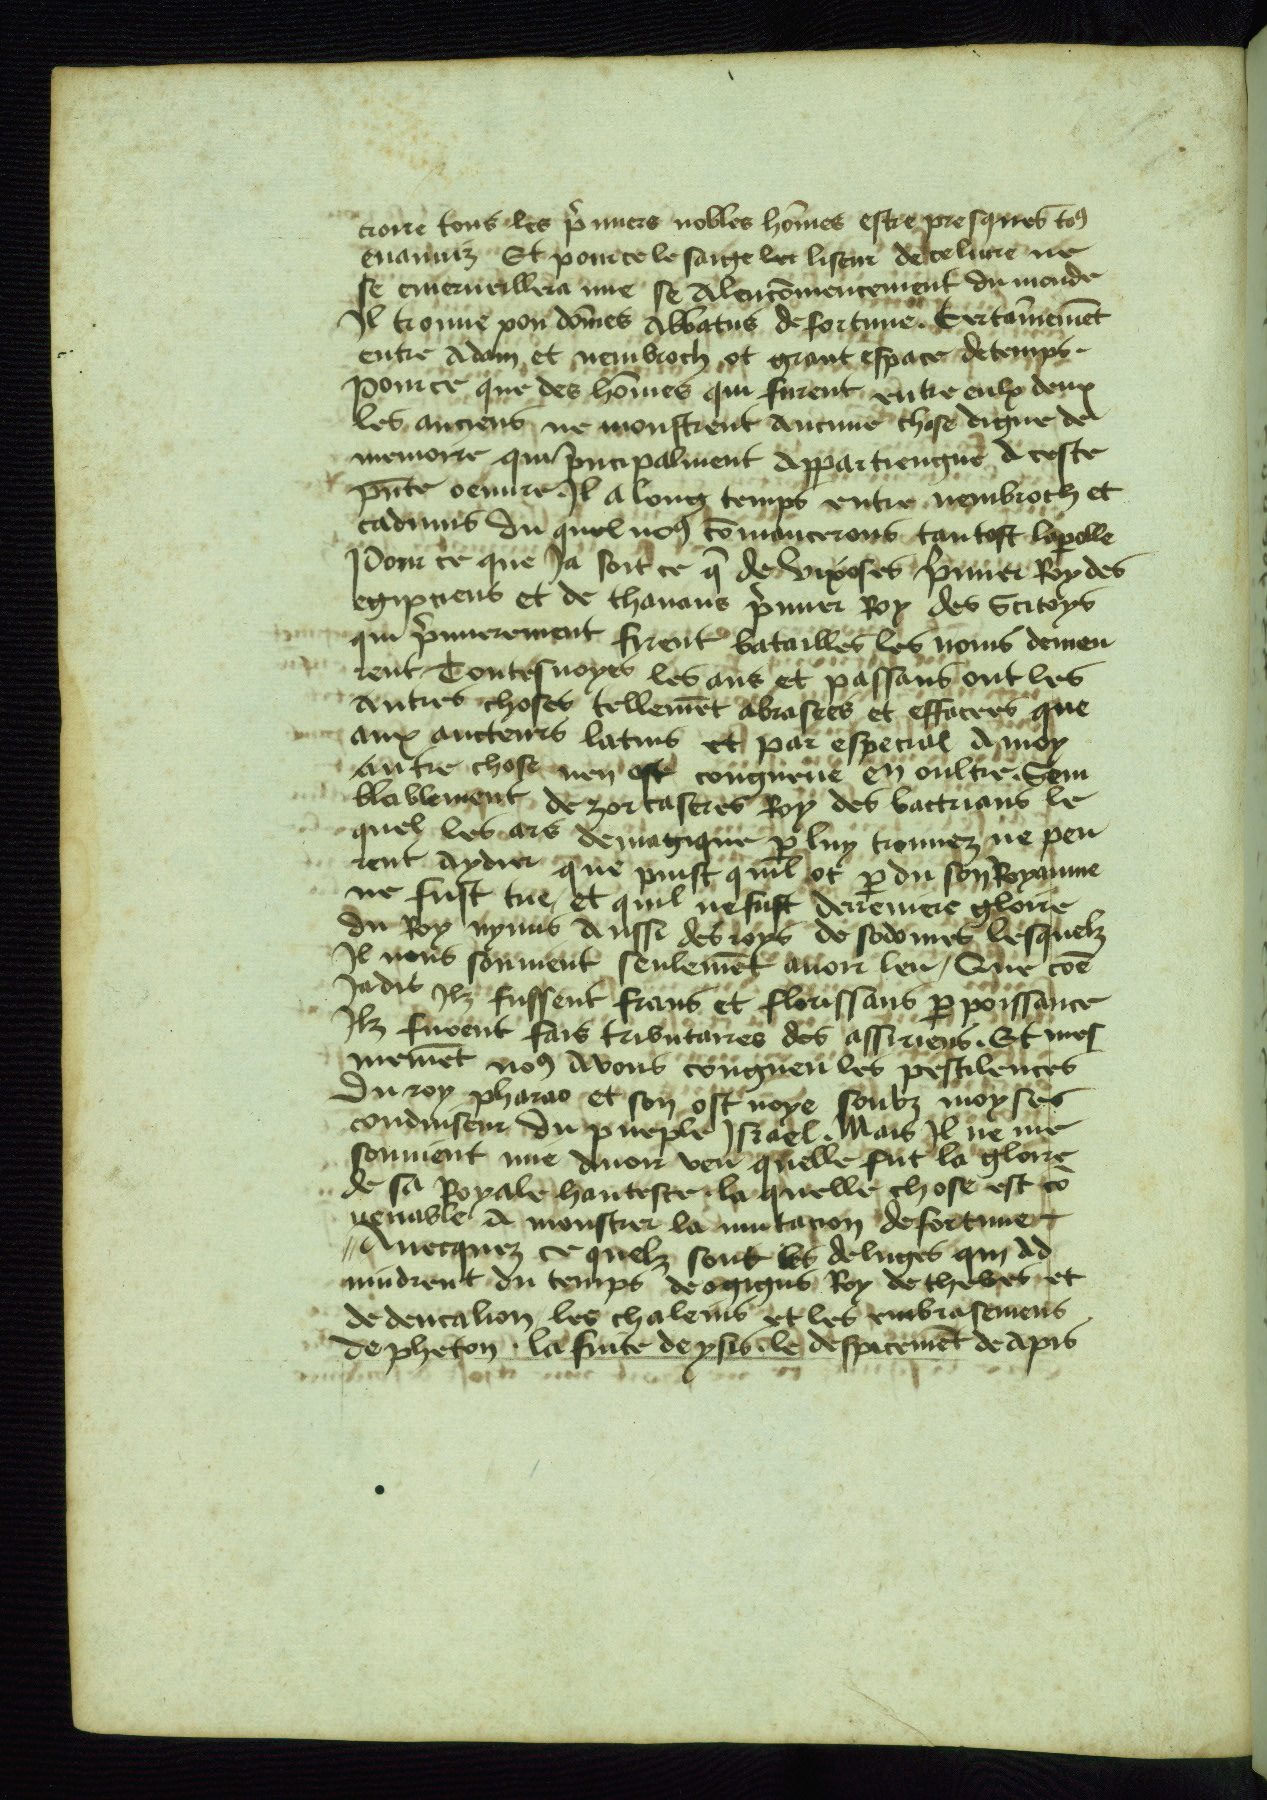 croire tous les p̄miers nobles hōmes estre presques toꝯ
euanuiz Et pource le saige lec liseur de ce liure ne
se emerueillera mie se Alencōmencement du monde
Il trouue pou dōmes Abbatus de fortune. Certain̄emēt
entre Adam et nembroch ot grant espace de temps.
Pource que des hōmes qui furent entre eulx deux
les anciens ne monstrent Aucune chose digne de
memoire qui p̄ncipalment Appartiengne A ceste
pn̄te oeuure. Il a long temps entre nembroch et
cadmus du quel noꝯ cōmancerons tantost laꝑolle
Pour ce que Ja soit ce q̄ de vixoses p̄mier Roy des
egipciens et de thanaus p̄mier Roy des Scitoys
qui p̄mierement firent batailles les noms demeu
rent Toutesuoyes les ans et passans ont les
Autres choses tellemēt abrasees et effacees que
aux aucteurs latins et par especial A moy
Autre chose nen est congneue en oultre. Sem
blablement de zorcastres Roy des bactrians le
quel les ars demagique ꝑ luy trouuez ne peu
rent Aydier que puist quil ot ꝑdu son Royaume
ne fust tue, et quil ne fust derreniere gloire
du Roy nynus Aussi des roys de sodomes lesquelz
Il nous souuient seulemēt auoir leu / Que cōe
Jadit Ilz fussent frans et florissans ꝑ poissance
Ilz furent fais tributaires des assiriens. Et mes
memēt noꝯ Avons congneu les pestilences
Du roy pharao et son ost noye soubz moyses
conduiseur du pueple Israel. Mais Il ne me
souuient mie Auoir veu quelle fut la gloire
de sa Royale haultesce. la quelle chose est cō
uenable A monstrer la mutacion de fortune
// Auecquez ce quelz sont les deluges qui Ad
uindrent du temps de ogigus Roy de thebes et
de deucalion, les chaleurs et les embrasemens
de pheton. la fuite de ysis. le despicemēt de Apis